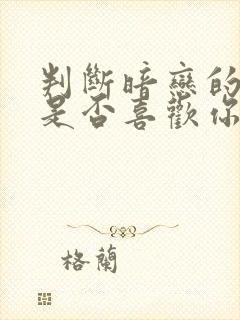 判斷暗戀的
是否喜歡你
格蘭